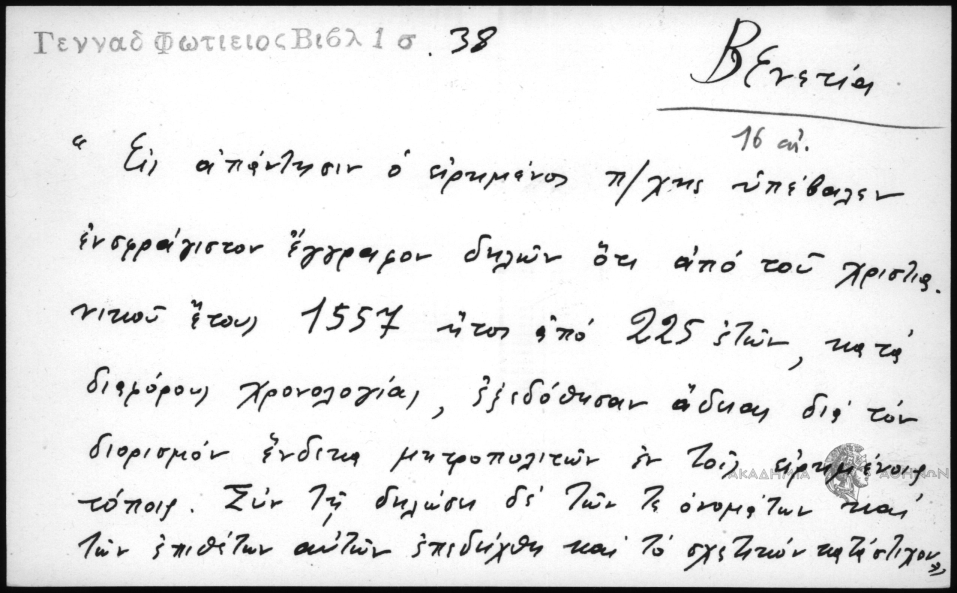 Γενναδ Φωτιειος Βιβλ 1 σ. 38
Βενετία
16 αἰ.
“ Εἰς ἀπάντησιν ὁ εἰρημένος π/χης ὑπέβαλεν
ἐνσφράγιστον ἔγγραφον δηλῶν ὅτι ἀπό τοῦ χριστια-
νικοῦ ἔτους 1557 ἤτοι ἀπό 225 ἐτῶν, κατά
διαφόρους χρονολογίας, ἐξεδόθησαν ἄδειαι διά τόν
διορισμόν ἕνδεκα μητροπολιτῶν ἐν τοῖς εἰρημένοις
τόποις. Σύν τῇ δηλώσει δέ τῶν τε ὀνομάτων καί
τῶν ἐπιθέτων αὐτῶν ἐπεδείχθη καί τό σχετικόν κατάστιχον”
ΑΚΑΔΗΜΙΑ ΑΘΗΝΩΝ